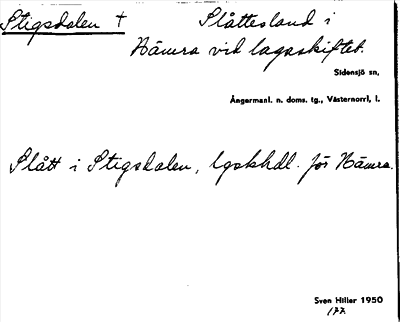 Stigsdalen † Slåttesland i
Nämra vid lagaskiftet.
Sidensjö sn,
Ångermanl. n. doms. tg., Västernorrl, l.
Slått i Stigsdalen, lgskhdl. för Nämra.
Sven Hiller 1950
177